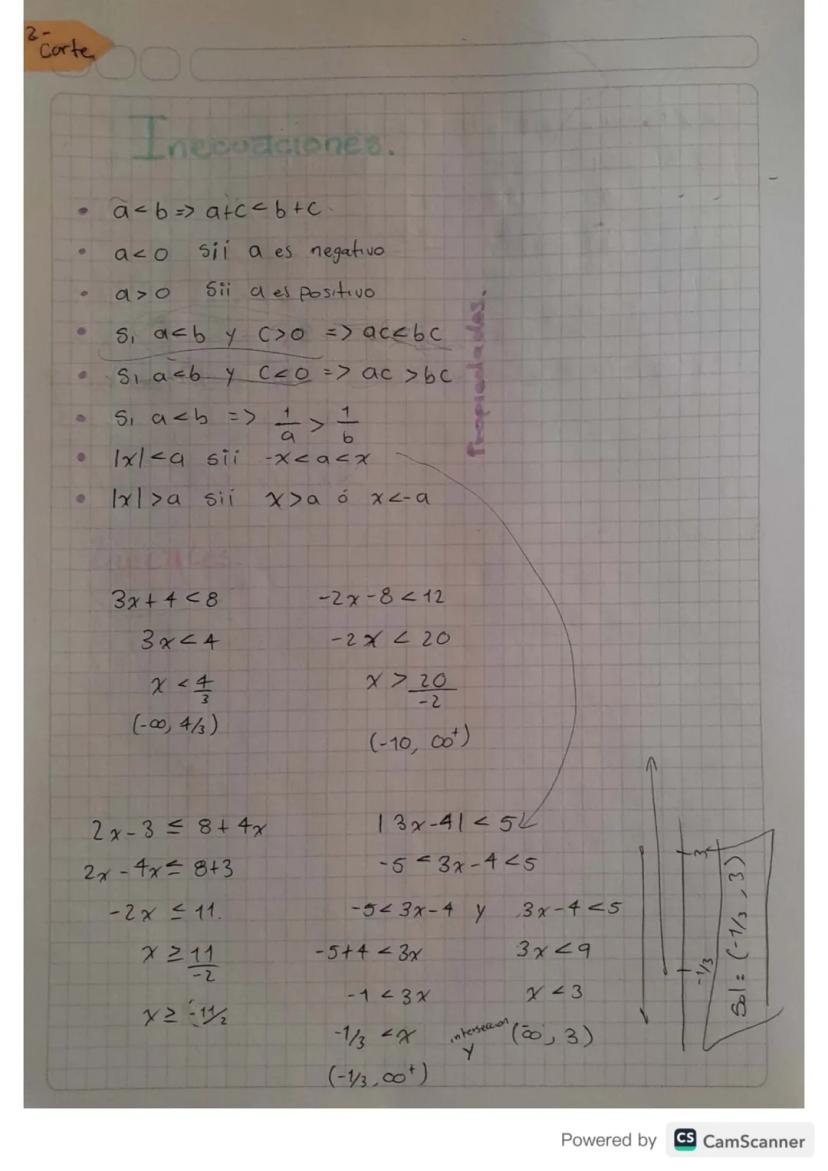 2-
Corte
Inecuaciones.
• a<b => a+c<b+c
• a<0 sii a es negativo
• a>0 sii a es positivo
• Si a<b y c>0 => ac<bc
• Si a<b y c<0 => ac >bc
• Si a<b => 1/a > 1/b
• |x|<a sii -x<a<x
• |x|>a sii x>a ó x<-a
Propiedades.
3x+4<8
3x<4
x < 4/3
(-∞, 4/3)
-2x-8<12
-2x < 20
x > 20/-2
(-10, ∞⁺)
2x-3 ≤ 8+4x
2x-4x≤ 8+3
-2x ≤ 11.
x ≥ 11/-2
x ≥ -11/2
|3x-4| < 5
-5 < 3x-4 < 5
-5< 3x-4 y 3x-4 <5
-5+4 < 3x 3x<9
-1 < 3x x < 3
-1/3 < x y (-∞, 3)
(-1/3, ∞⁺)
3
-1/3
Sol = (-1/3, 3)
Powered by CS CamScanner